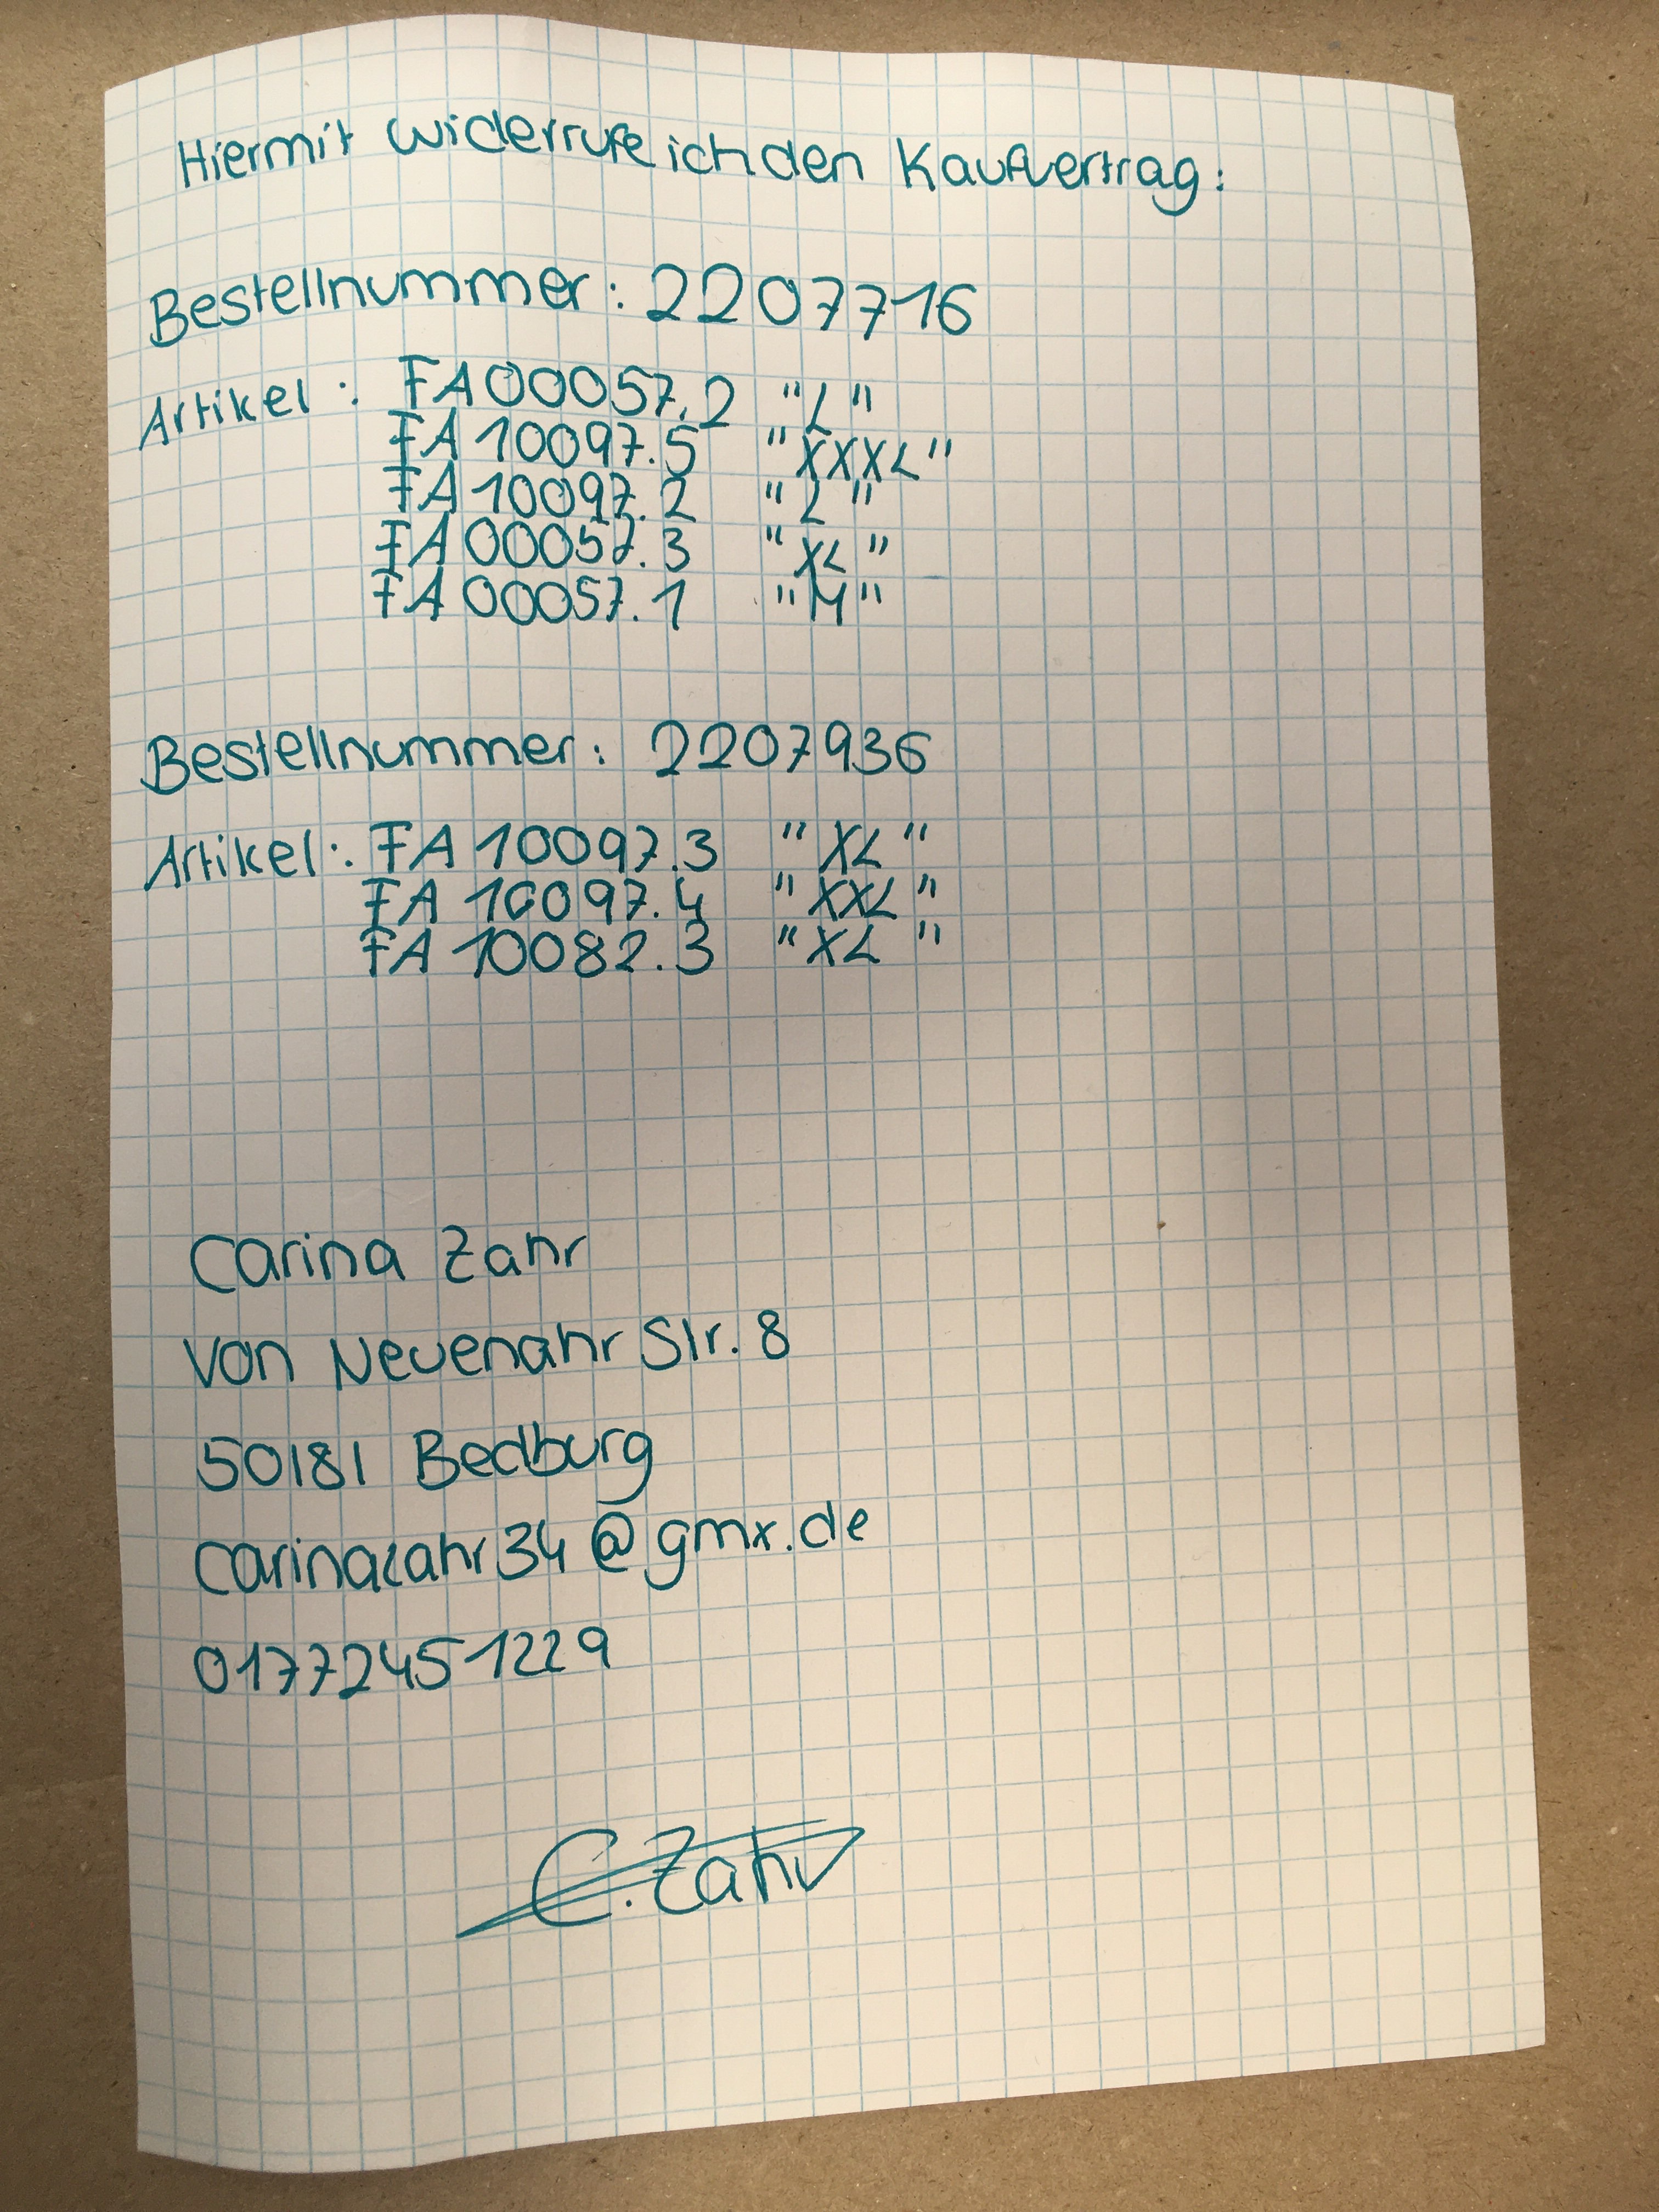 Hiermit widerrufe ich den Kaufvertrag:
Bestellnummer: 2207716
Artikel: FA00057.2 "L"
FA10097.5 "XXXL"
FA10097.2 "L"
FA00057.3 "XL"
FA00057.1 "M"
Bestellnummer: 2207936
Artikel: FA10097.3 "XL"
FA10097.4 "XXL"
FA10082.3 "XL"
Carina Zahr
Von Neuenahr Str. 8
50181 Bedburg
carinazahr34@gmx.de
01772451229
C. Zahr